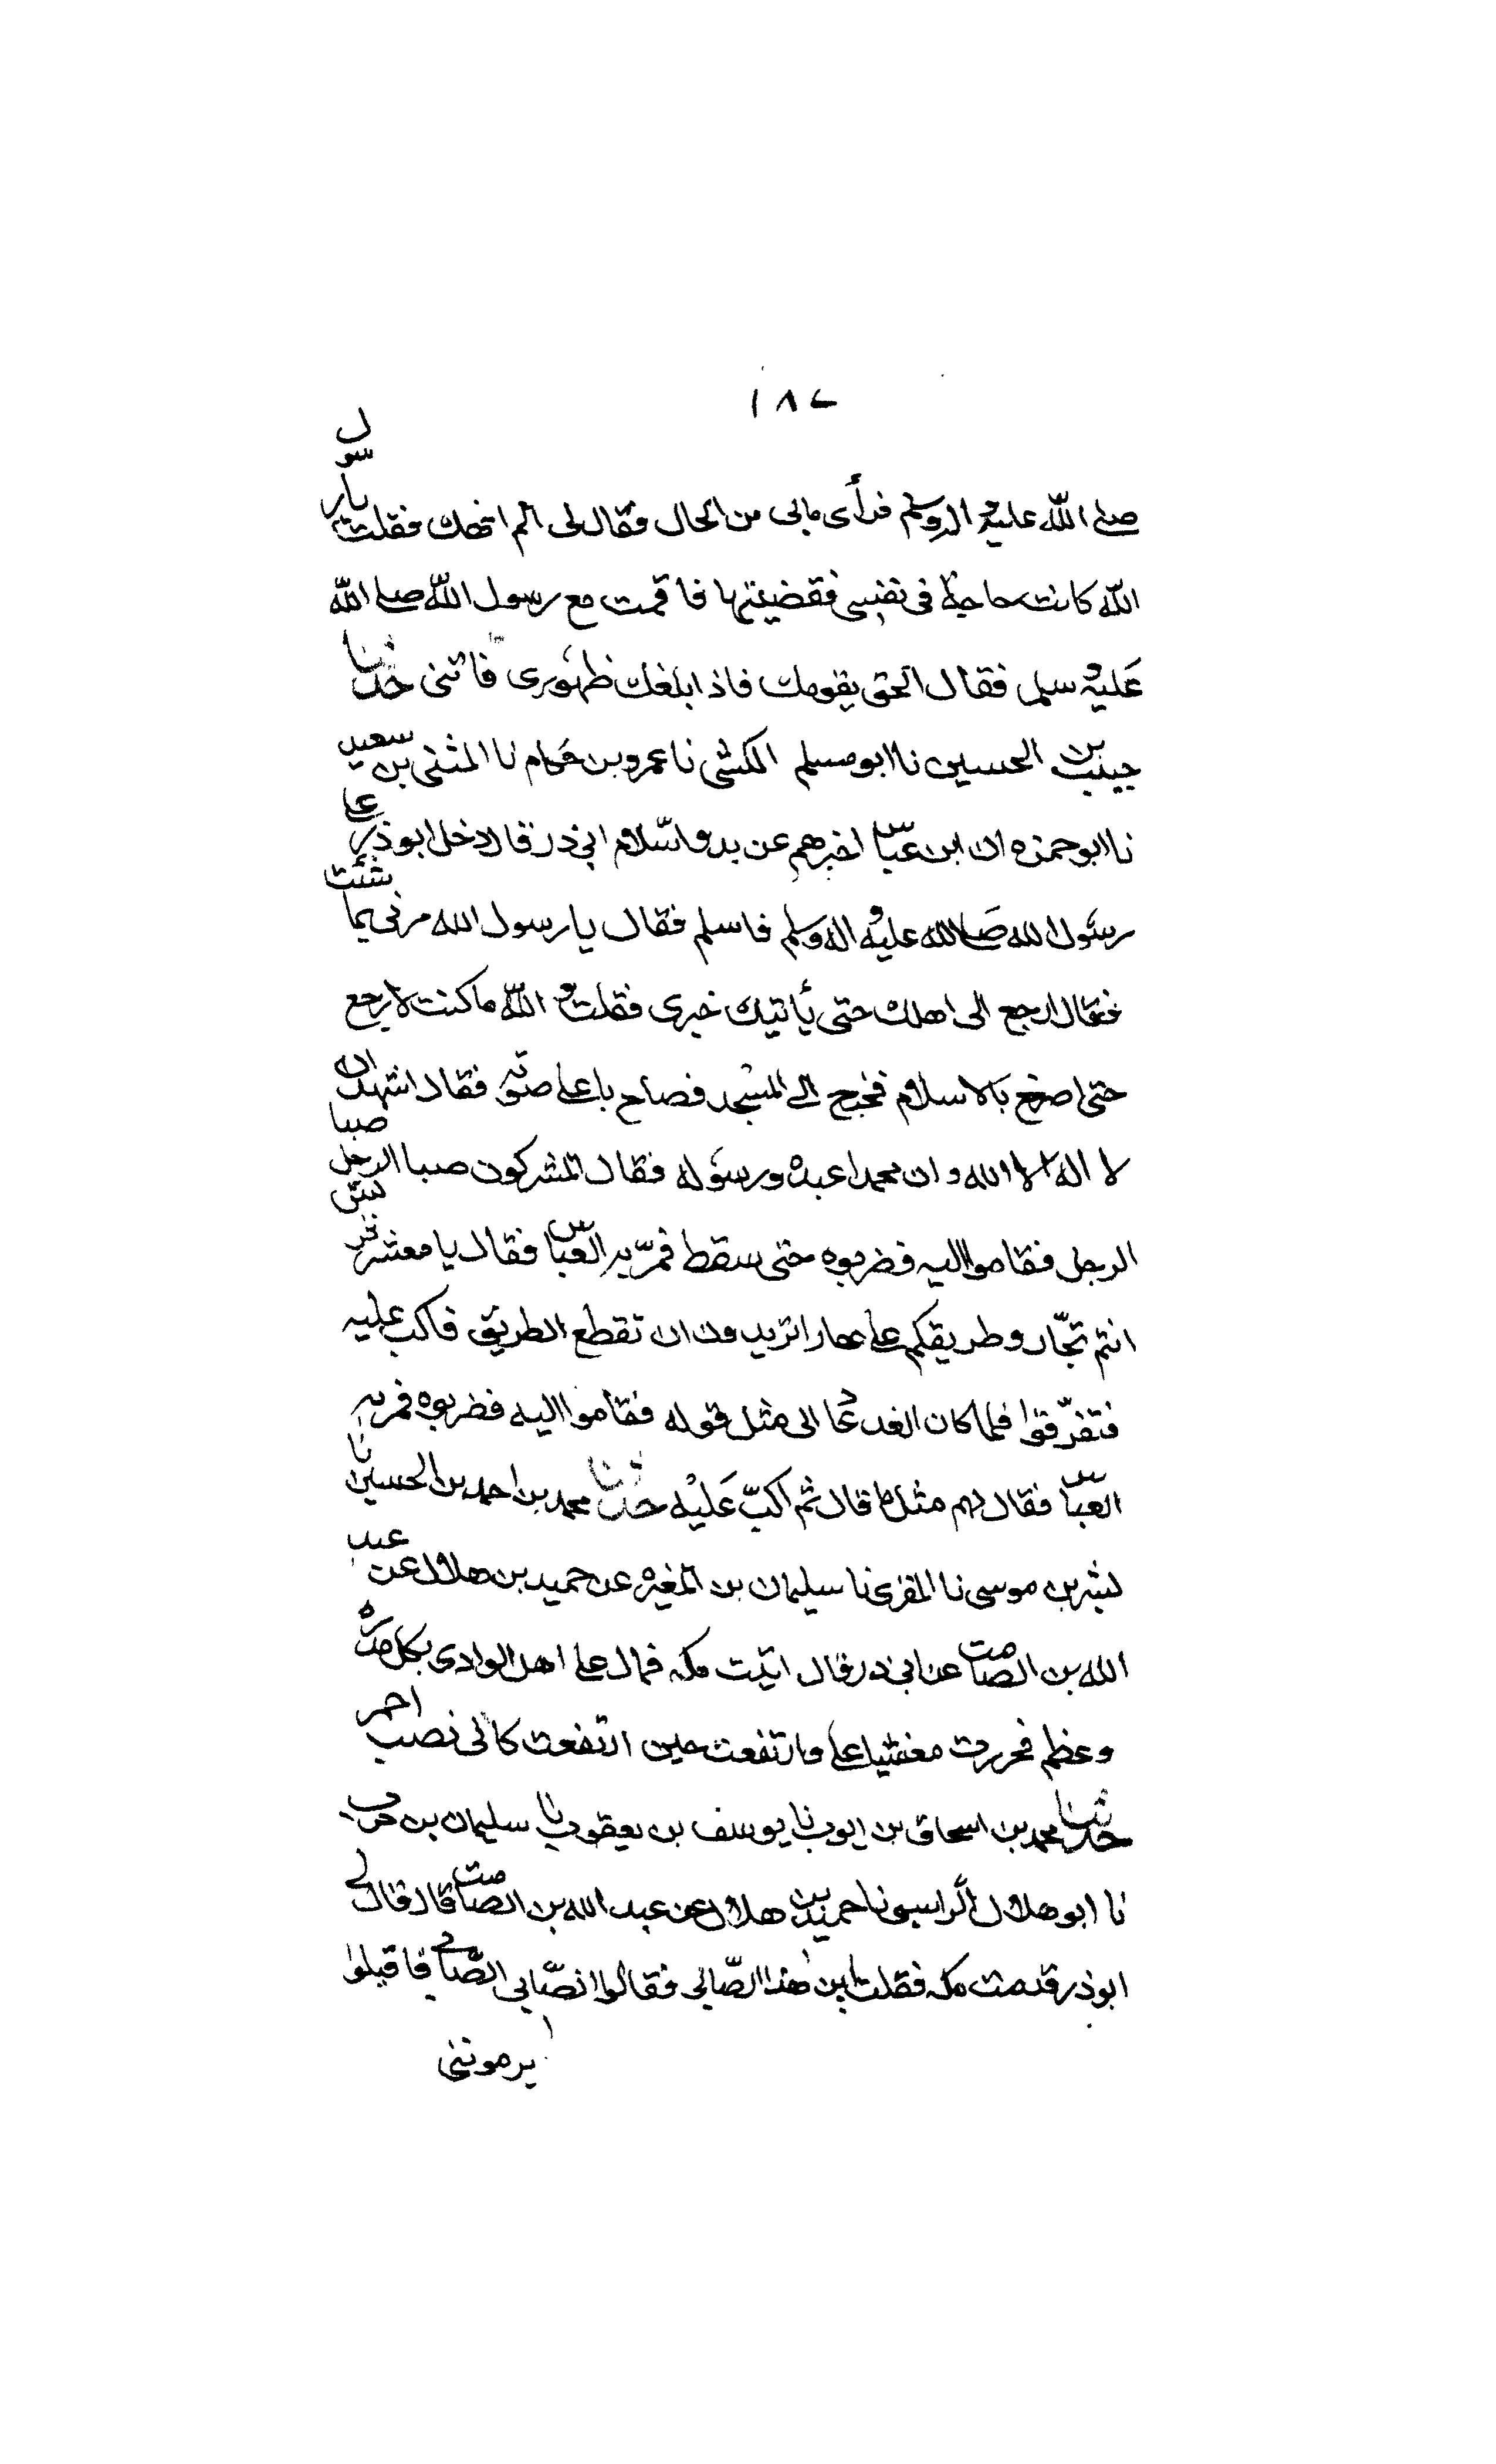 ١٨٧
صلى الله عليه واله وسلم فرأى مابى من الحال فقال لى الم انهك فقلت يارسول
الله كانت حاجة فى نفسى فقضيتها فاقمت مع رسول الله صلى الله
عليه وسلم فقال الحق بقومك فاذا بلغك ظهورى فاتنى حدثنا
حبيب بن الحسين نا ابو مسلم الكشى نا عمرو بن حكام نا المثنى بن سعيد
نا ابو حمزه ان ابن عباس اخبرهم عن بدو اسلام ابى ذر قال دخل ابو ذر على
رسول الله صلى الله عليه واله وسلم فاسلم فقال يا رسول الله مرنى بما شئت
فقال ارجع الى اهلك حتى يأتيك خبرى فقلت والله ما كنت لارجع
حتى اصرخ بالاسلام فخرج الى المسجد فصاح باعلى صوته فقال اشهد ان
لا اله الا الله و ان محمدا عبده ورسوله فقال المشركون صبا الرجل صبا
الرجل فقاموا اليه فضربوه حتى سقط فمرّ به العباس فقال يا معشر قريش
انتم تجّار وطريقكم على غفار اتريدون ان تقطع الطريق فاكب عليه
فتفرّقوا فلما كان الغد عاد الى مثل قوله فقاموا اليه فضربوه فمر به
العباس فقال لهم مثل ما قال ثم اكبّ عليه حدثنا محمد بن احمد بن الحسين نا
بشر بن موسى نا المقرى نا سليمان بن المغيره عن حميد بن هلال عن عبد
الله بن الصامت عن ابى ذر قال اتيت مكه فمال على اهل الوادى بكل مدره
وعظم فخررت مغشيا على فارتفعت حين ارتفعت كانى نصب احمر
حدثنا محمد بن اسحاق بن ايوب نا يوسف بن يعقوب نا سليمان بن حرب
نا ابو هلال الراسبى نا حميد بن هلال عن عبد الله بن الصامت قال قال لى
ابو ذر قدمت مكه فقلت اين هذا الصّابى فقالوا الصّابى الصّابى فاقبلوا
يرموننى